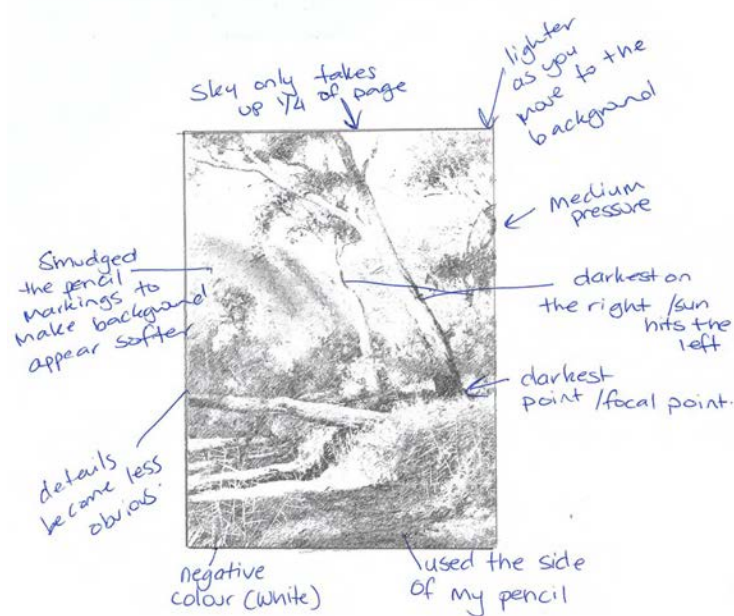 Sky only takes
up 1/4 of page
lighter
as you
move to the
background
medium
pressure
Smudged
the pencil
markings to
make background
appear softer
darkest on
the right /sun
hits the
left
darkest
point /focal point.
details
become less
obvious.
negative
colour (white)
used the side
of my pencil